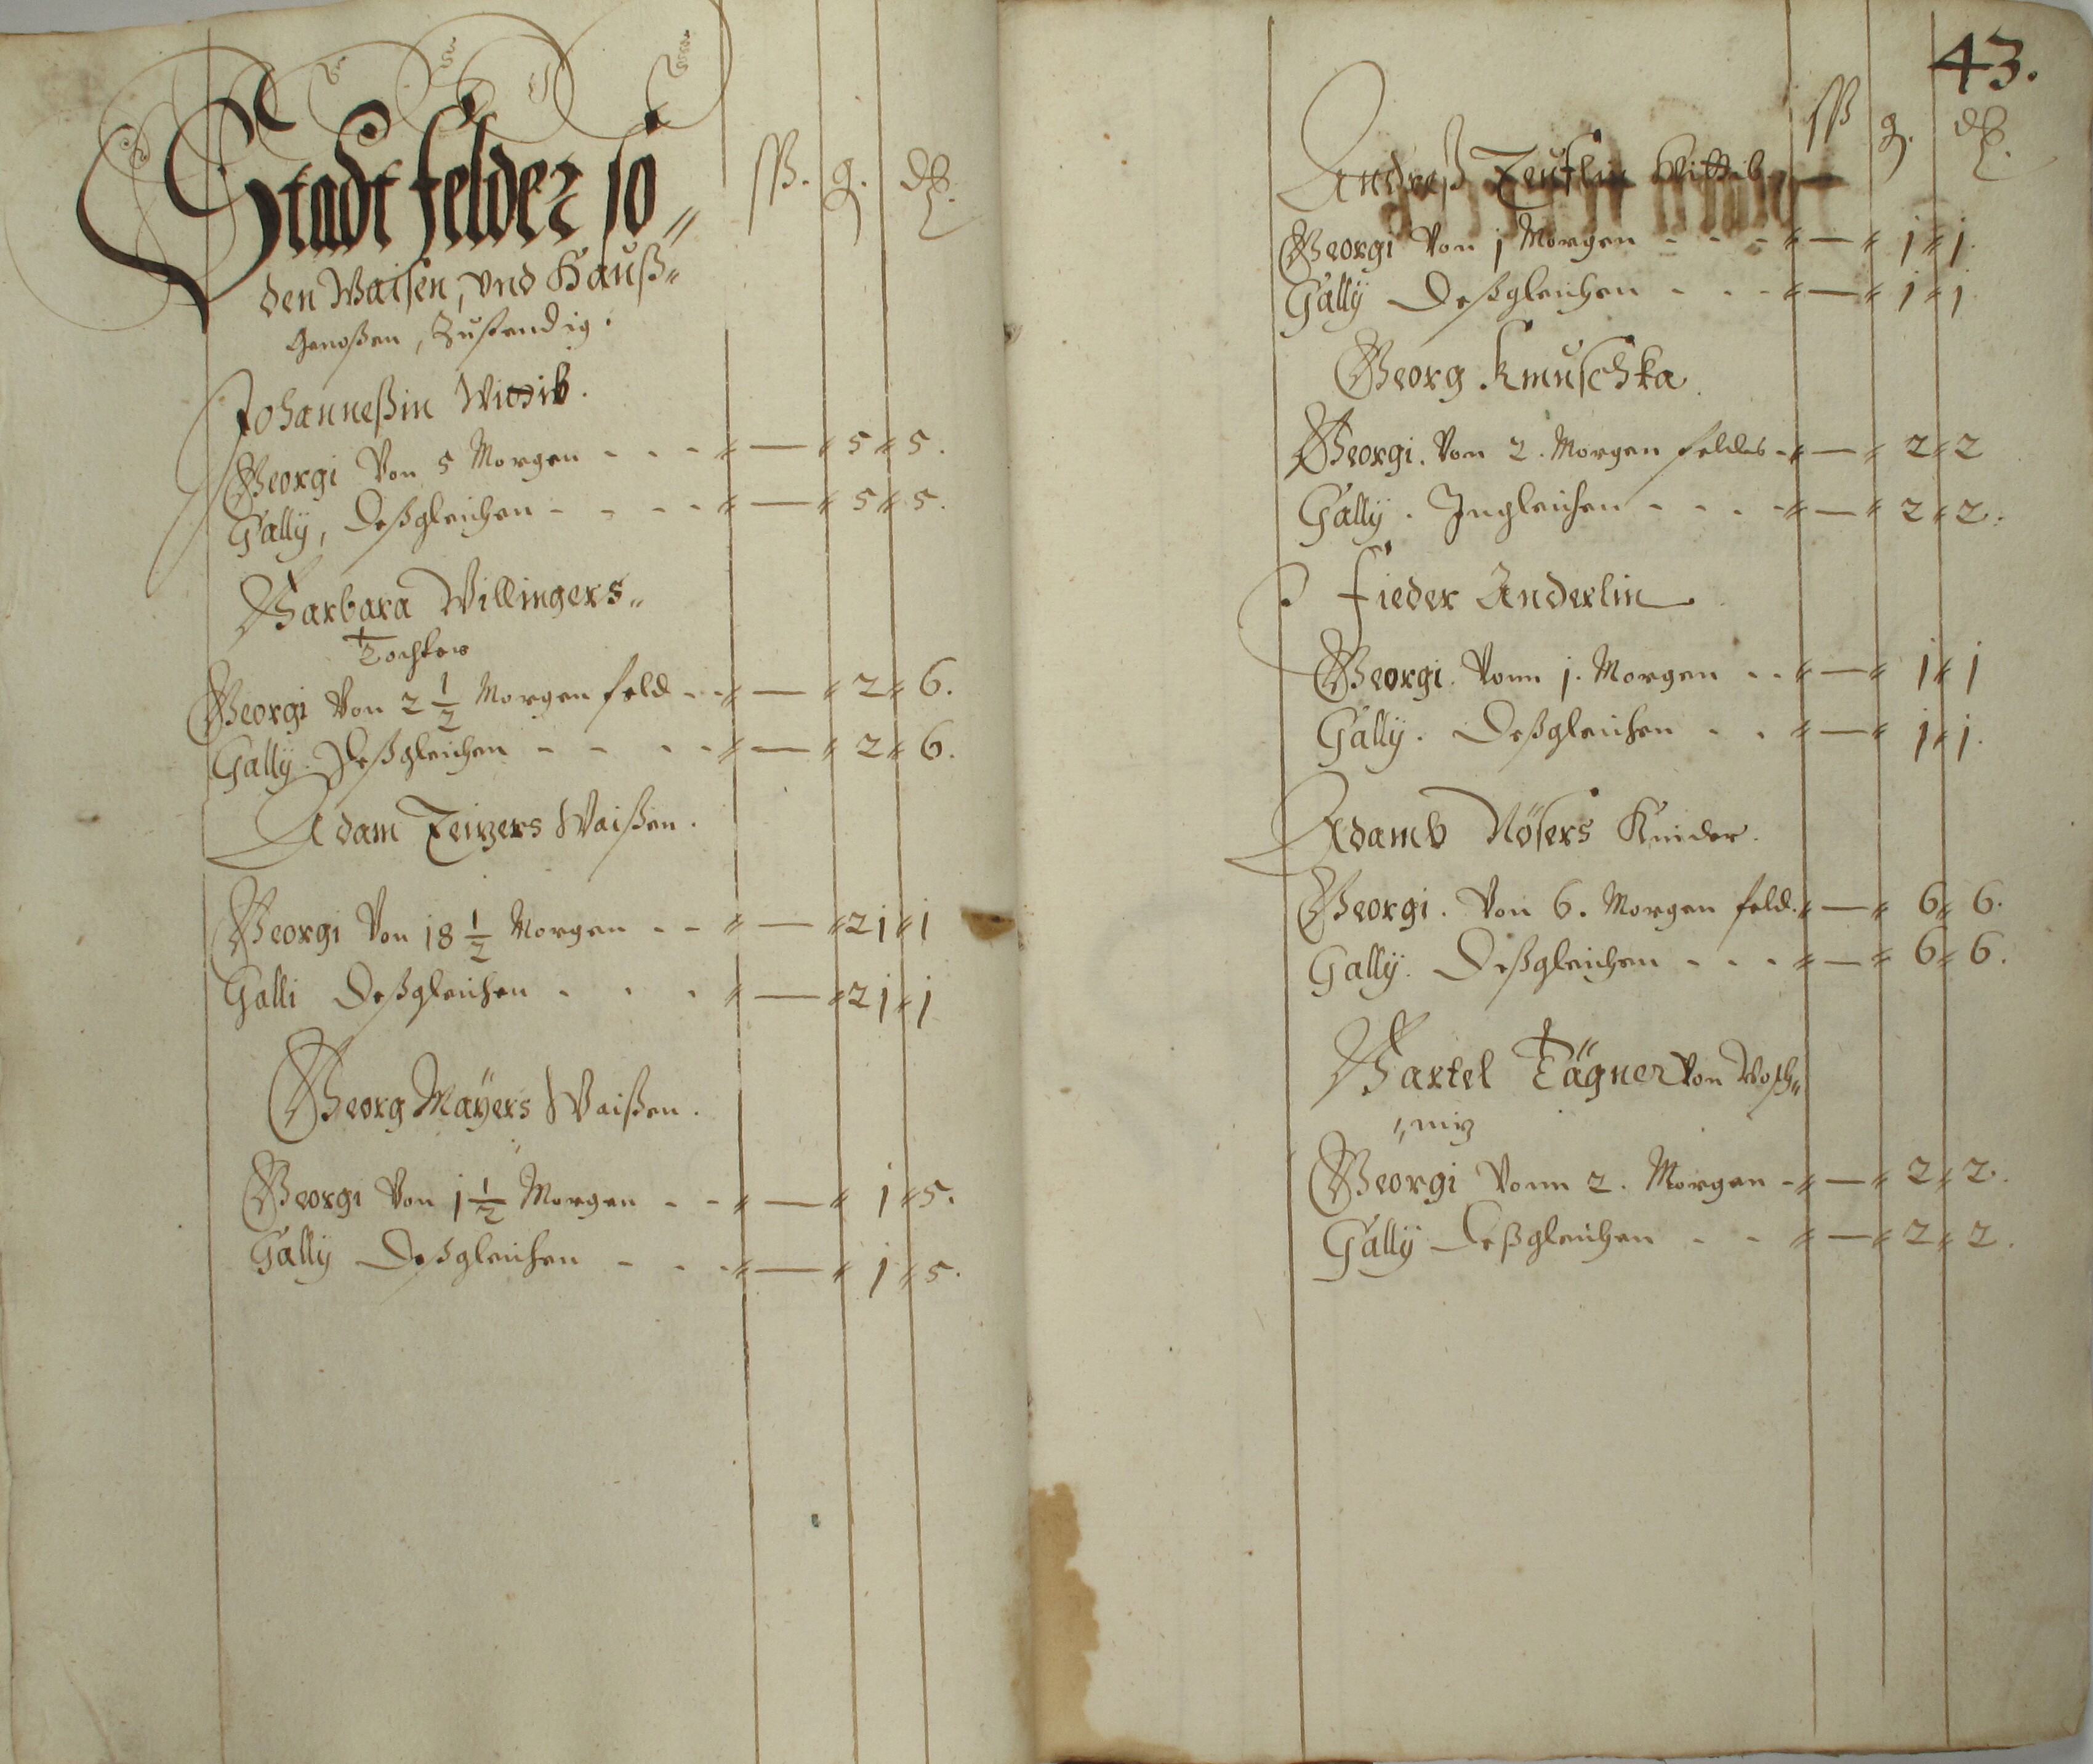 Stadt felder so„
ßß. g. d
den Waisen, vnd Hauß„
genoßen, Zustendig.
Johanneßin Wittib.
Georgi Von 5 Morgen - - - „ — „ 5 „ 5.
Gally, Deßgleichen - - - - „ — „ 5 „ 5.
Barbara Willingers„
Tochter
Georgi Von 2 1/2 Morgen feld - - „ — „ 2 „ 6.
Gally. Deßgleichen - - - - „ — „ 2 „ 6.
Adam Zeizers Waißen.
Georgi Von 18 1/2 Morgen - - „ — „ 21 „ 1
Galli Deßgleichen - - - „ — „ 21 „ 1
Georg Mayers Waißen.
Georgi Von 1 1/2 Morgen - - „ — „ 1 „ 5.
Gally Deßgleichen - - - „ — „ 1 „ 5.
43.
ßß g. d
Andreß Wittib
Georgi Von 1 Morgen - - - „ — „ 1 „ 1.
Gally Deßgleichen - - - „ — „ 1 „ 1
Georg Kmuschka.
Georgi. Von 2. Morgen feldes - „ — „ 2 „ 2
Gally. Ingleichen - - - - „ — „ 2 „ 2.
Fieder Anderlin
Georgi. Vonn 1. Morgen - - „ — „ 1 „ 1
Gally. Deßgleichen - - „ — „ 1 „ 1.
Adamb Nösers Kinder.
Georgi. Von 6. Morgen feld. „ — „ 6 „ 6.
Gally. Deßgleichen - - - „ — „ 6 „ 6.
Bartel Tägner Von Wosch„
„niz
Georgi Vonn 2. Morgen - „ — „ 2 „ 2.
Gally Deßgleichen - - „ — „ 2 „ 2.